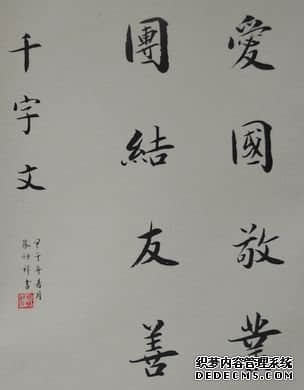 愛國敬業
團結友善
千字文
年 月
書
织梦内容管理系统
DEDECMS.COM